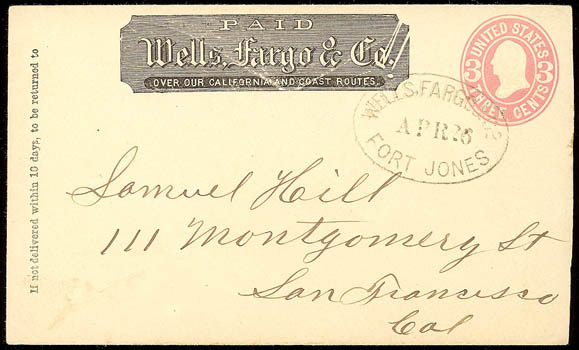 PAID
Wells, Fargo & Co.
OVER OUR CALIFORNIA AND COAST ROUTES.
UNITED STATES
3 3
THREE CENTS
WELLS, FARGO & Co
APR 26
FORT JONES
If not delivered within 10 days, to be returned to
Samuel Hill
111 Montgomery St
San Francisco
Cal